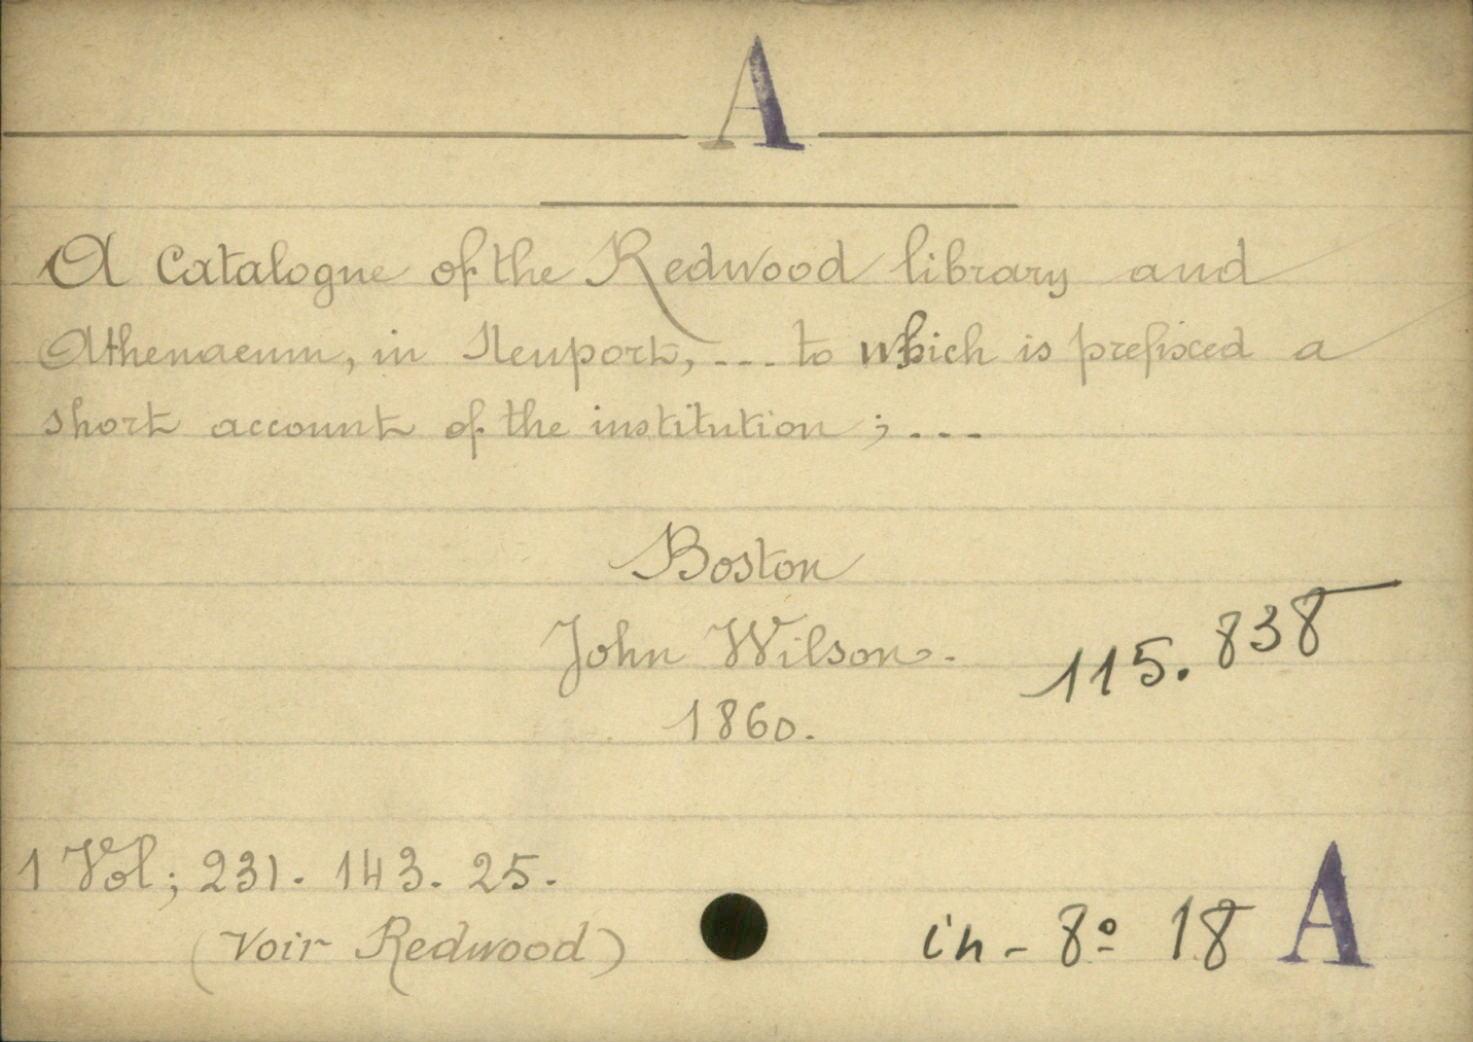 A
A Catalogue of the Redwood library and
Athenaeum, in Neuport, ... to which is prefixed a
short account of the institution ; ...
Boston
John Wilson.
115.838
1860.
1 Vol; 231. 143. 25.
(Voir Redwood)
in-8º 18 A